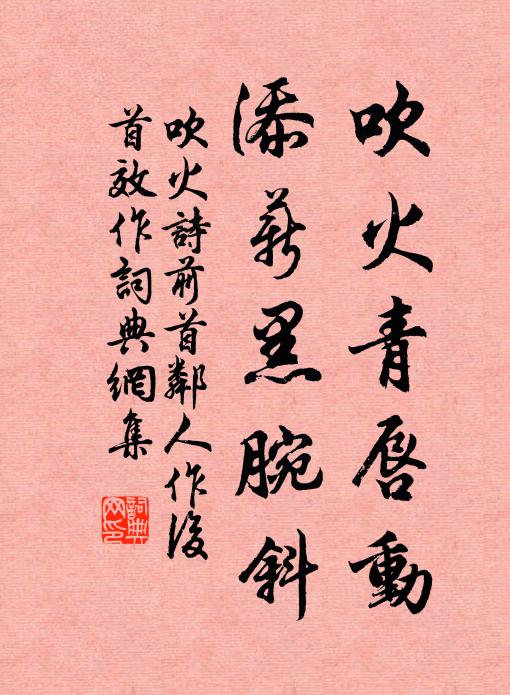 吹火青唇動
添薪黑腕斜
吹火詩前首鄰人作後
首效作詞典網集
詞典
網印